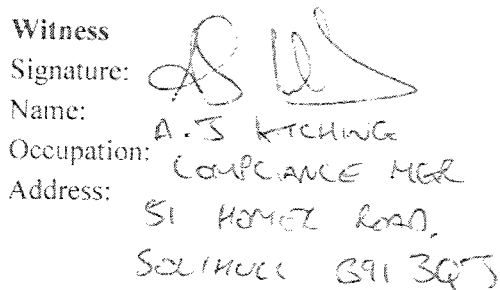 Witness
Signature:
Name: A.J
Occupation: COMPLIANCE MGR
Address: 51 HOMER ROAD,
SOLIHULL B91 3QJ